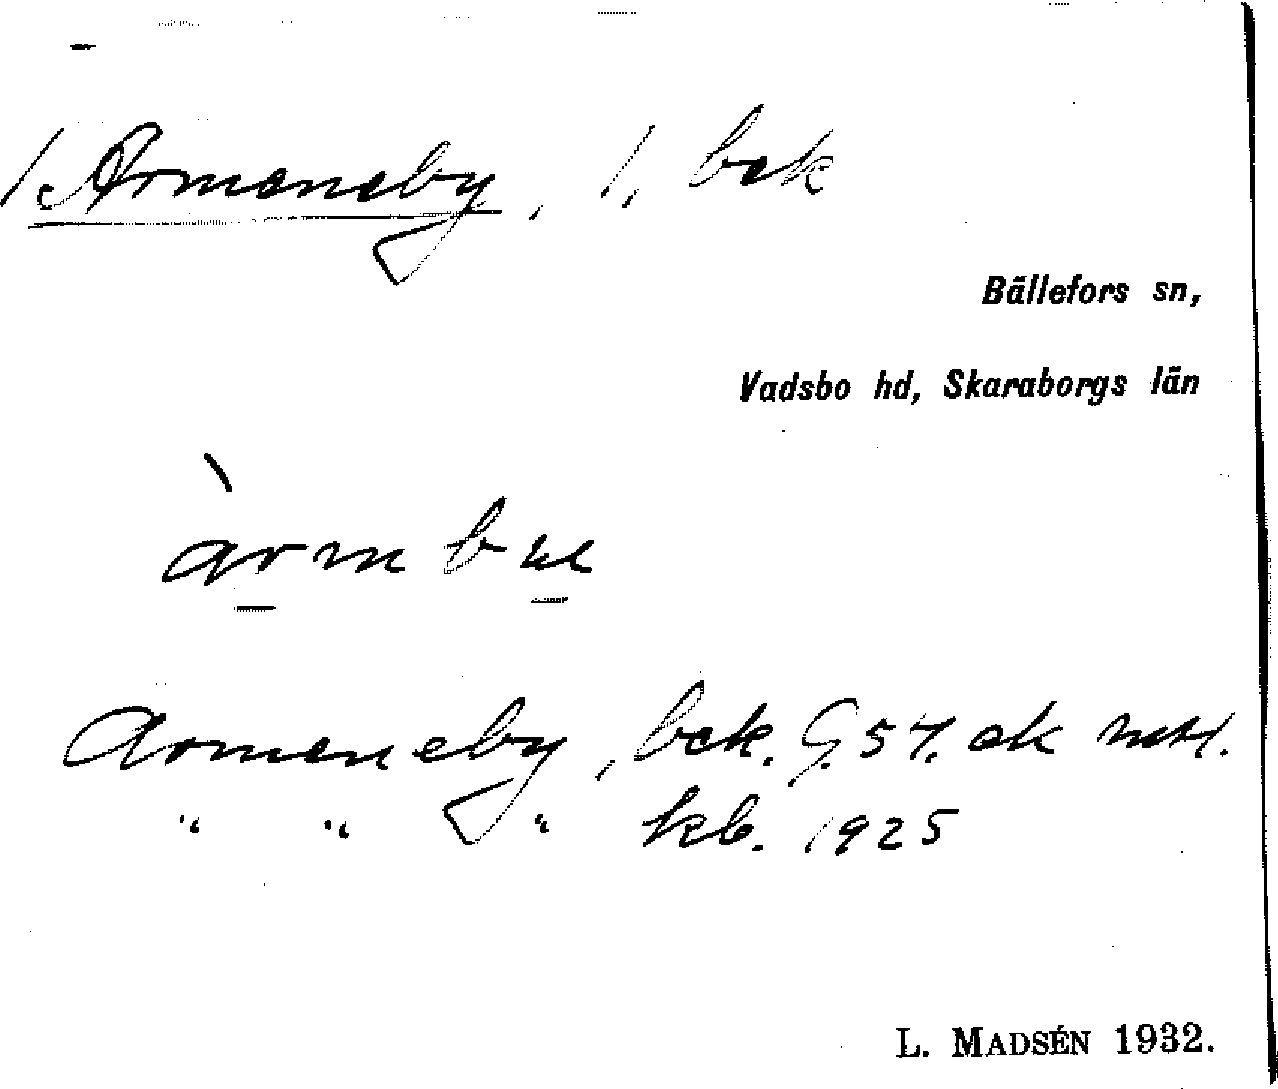 1. Armeneby, 1, bck
Bällefors sn,
Vadsbo hd, Skaraborgs län
àrm b
Armeneby, bck. G. 57. ok
" " " kb. 1925
L. MADSÉN 1932.